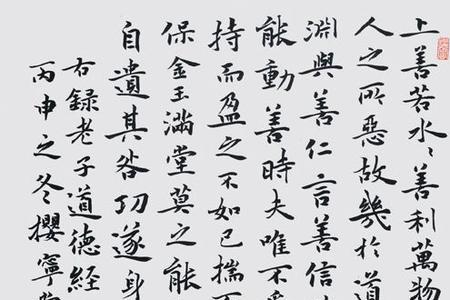 上善若水〻善利萬物
人之所惡故幾於道
淵與善仁言善信
能動善時夫唯不
持而盈之不如已揣
保金玉滿堂莫之能
自遺其咎功遂身
右錄老子道德經
丙申之冬攖寧